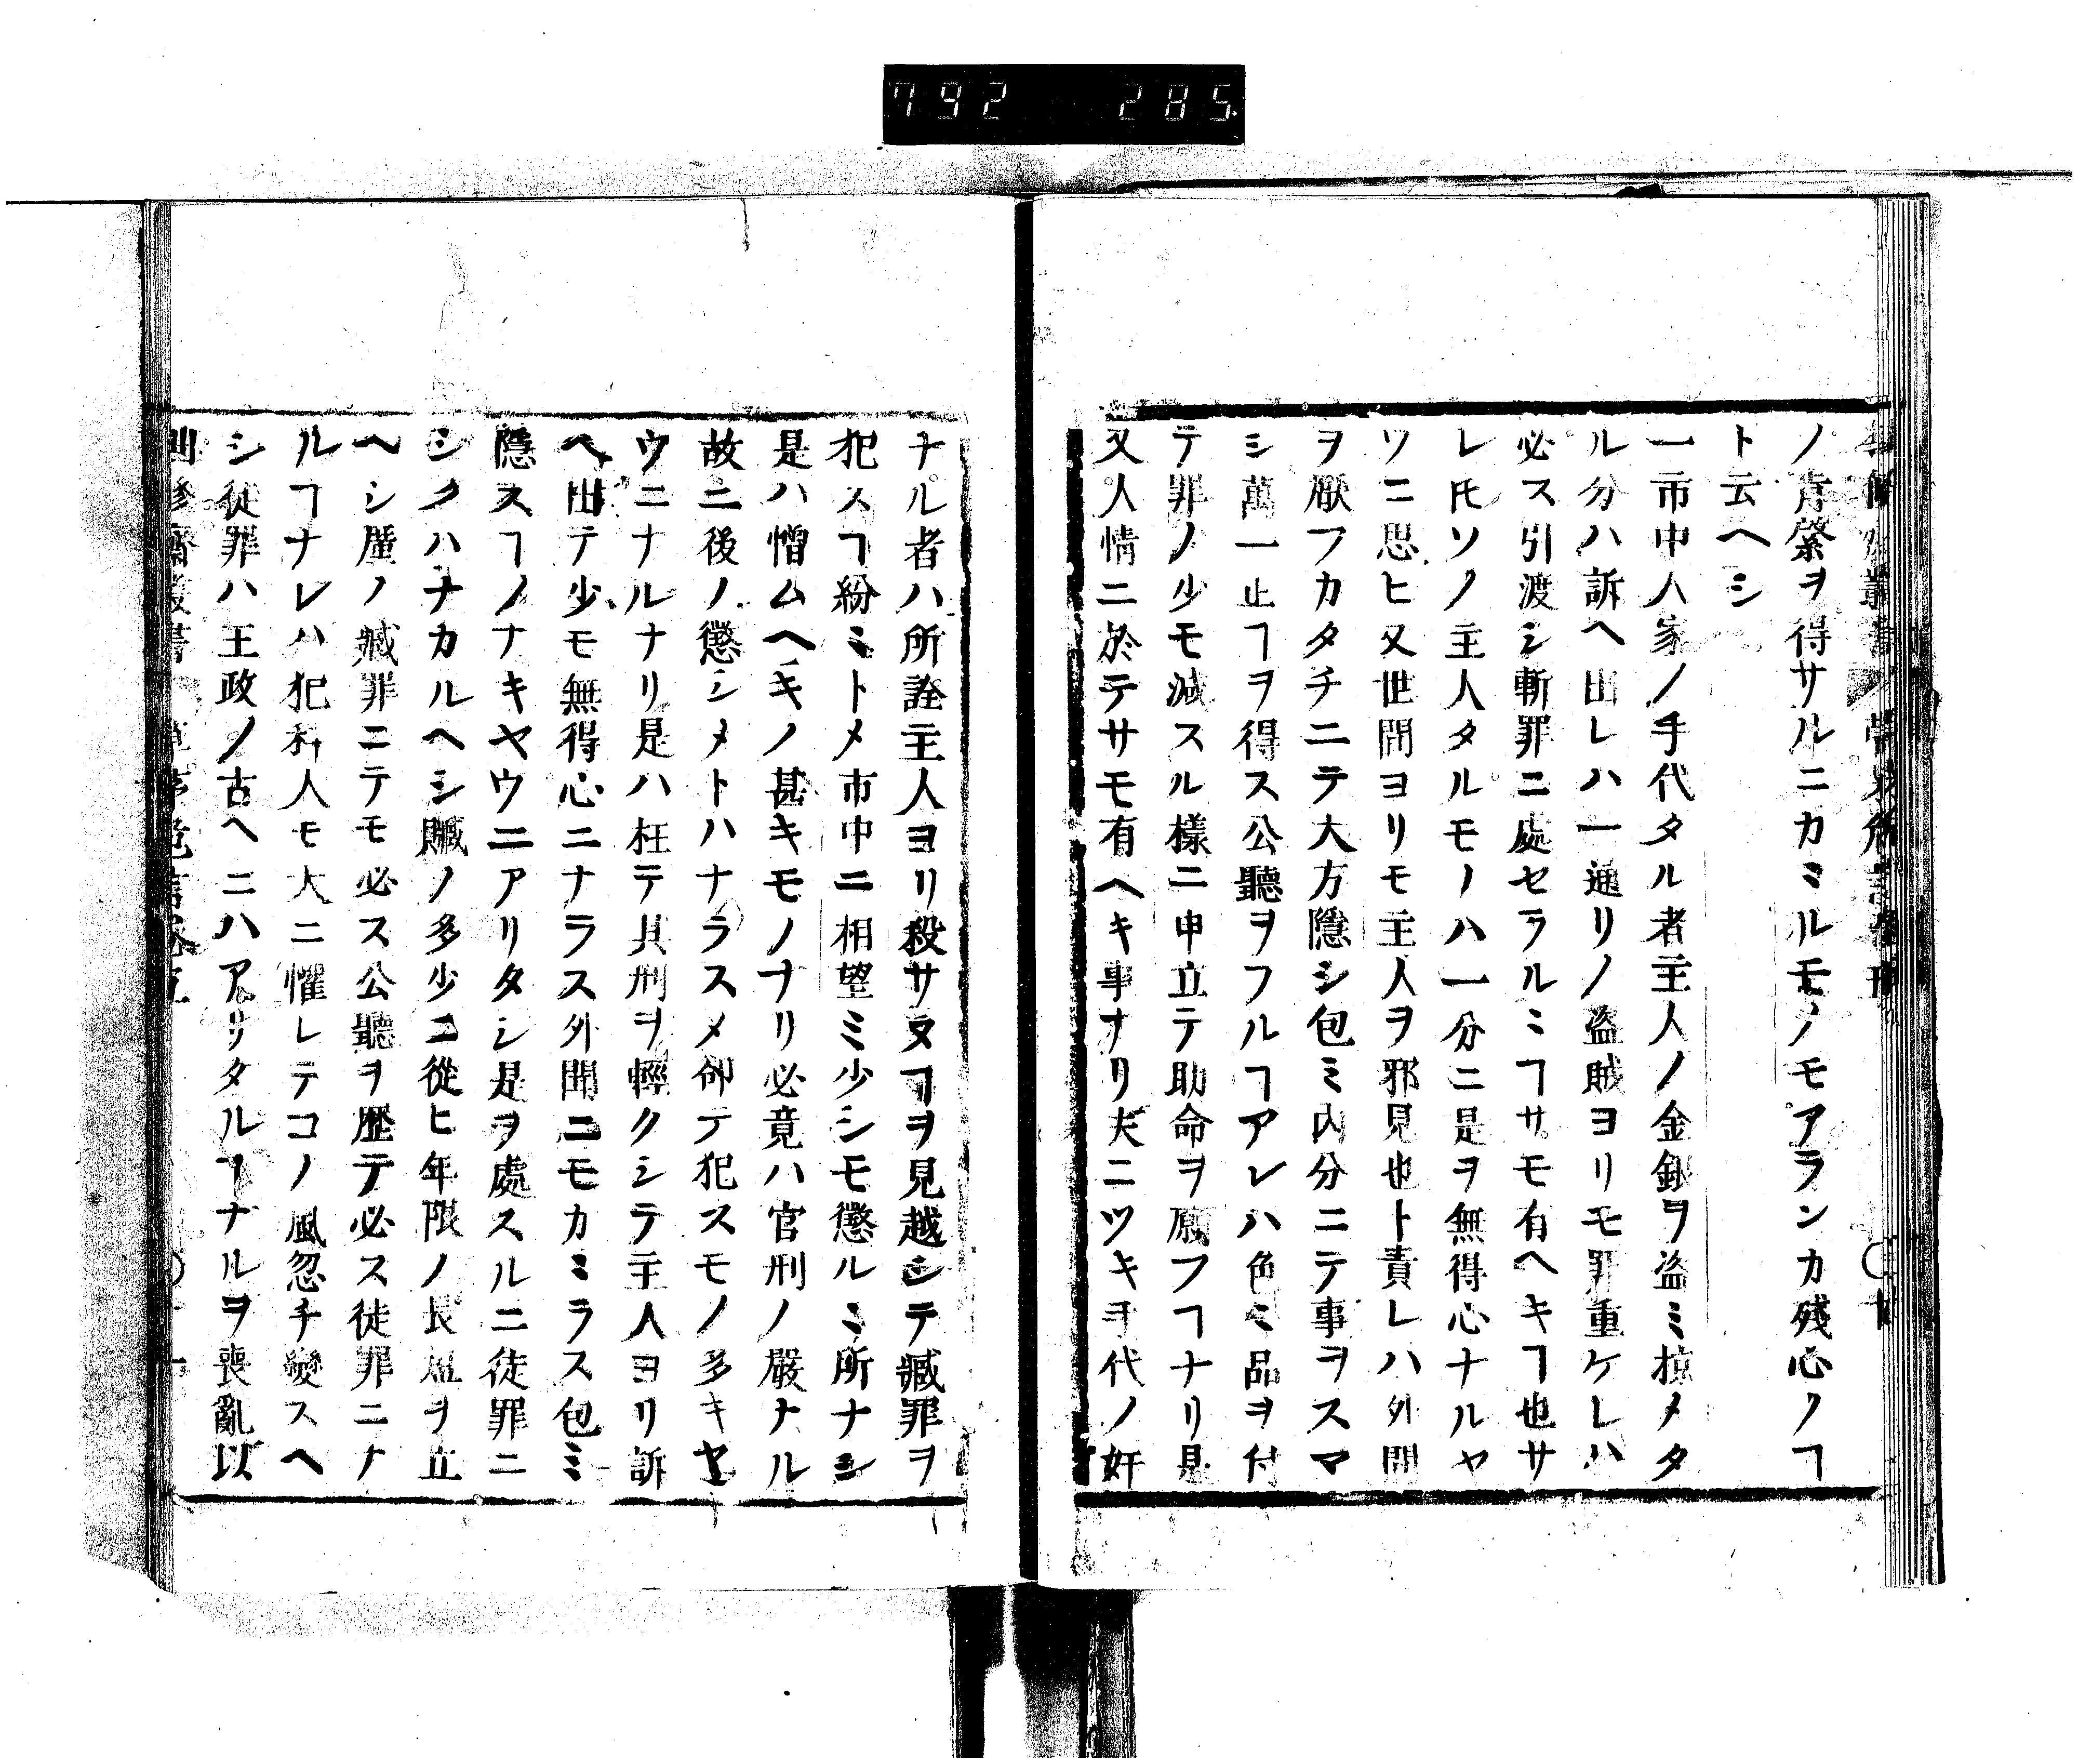 792 285
ノ肯綮ヲ得サルニカミルモノモアランカ殘心ノヿ
ト云ヘシ
一市中人家ノ手代タル者主人ノ金銀ヲ盗ミ掠メタ
ル分ハ訴ヘ出レハ一通リノ盗賊ヨリモ罪重ケレハ
必ス引渡シ斬罪ニ處セラルミヿサモ有ヘキヿ也サ
レ氏ソノ主人タルモノハ一分ニ是ヲ無得心ナルヤ
ソニ思ヒ又世間ヨリモ主人ヲ邪見也ト責レハ外聞
ヲ厭フカタチニテ大方隱シ包ミ内分ニテ事ヲスマ
シ萬一止ヿヲ得ス公聽ヲフルヿアレハ色ミ品ヲ付
テ罪ノ少モ減スル樣ニ申立テ助命ヲ願フヿナリ是
又人情ニ於テサモ有ヘキ事ナリ夫ニツキ手代ノ奸
ナル者ハ所詮主人ヨリ殺サヌヿヲ見越シテ贓罪ヲ
犯スヿ紛ミトメ市中ニ相望ミ少シモ懲ルミ所ナシ
是ハ憎ムヘキノ甚キモノナリ必竟ハ官刑ノ嚴ナル
故ニ後ノ懲シメトハナラスメ却テ犯スモノ多キヤ
ウニナルナリ是ハ枉テ其刑ヲ輕クシテ主人ヨリ訴
ヘ出テ少モ無得心ニナラス外聞ニモカミラス包ミ
隱スヿノナキヤウニアリタシ是ヲ處スルニ徒罪ニ
シクハナカルヘシ贓ノ多少ニ從ヒ年限ノ長短ヲ立
ヘシ塵ノ贓罪ニテモ必ス公聽ヲ歴テ必ス徒罪ニナ
ルヿナレハ犯科人モ大ニ懼レテコノ風忽チ變スヘ
シ徒罪ハ王政ノ古ヘニハアリタルヿナルヲ喪亂以